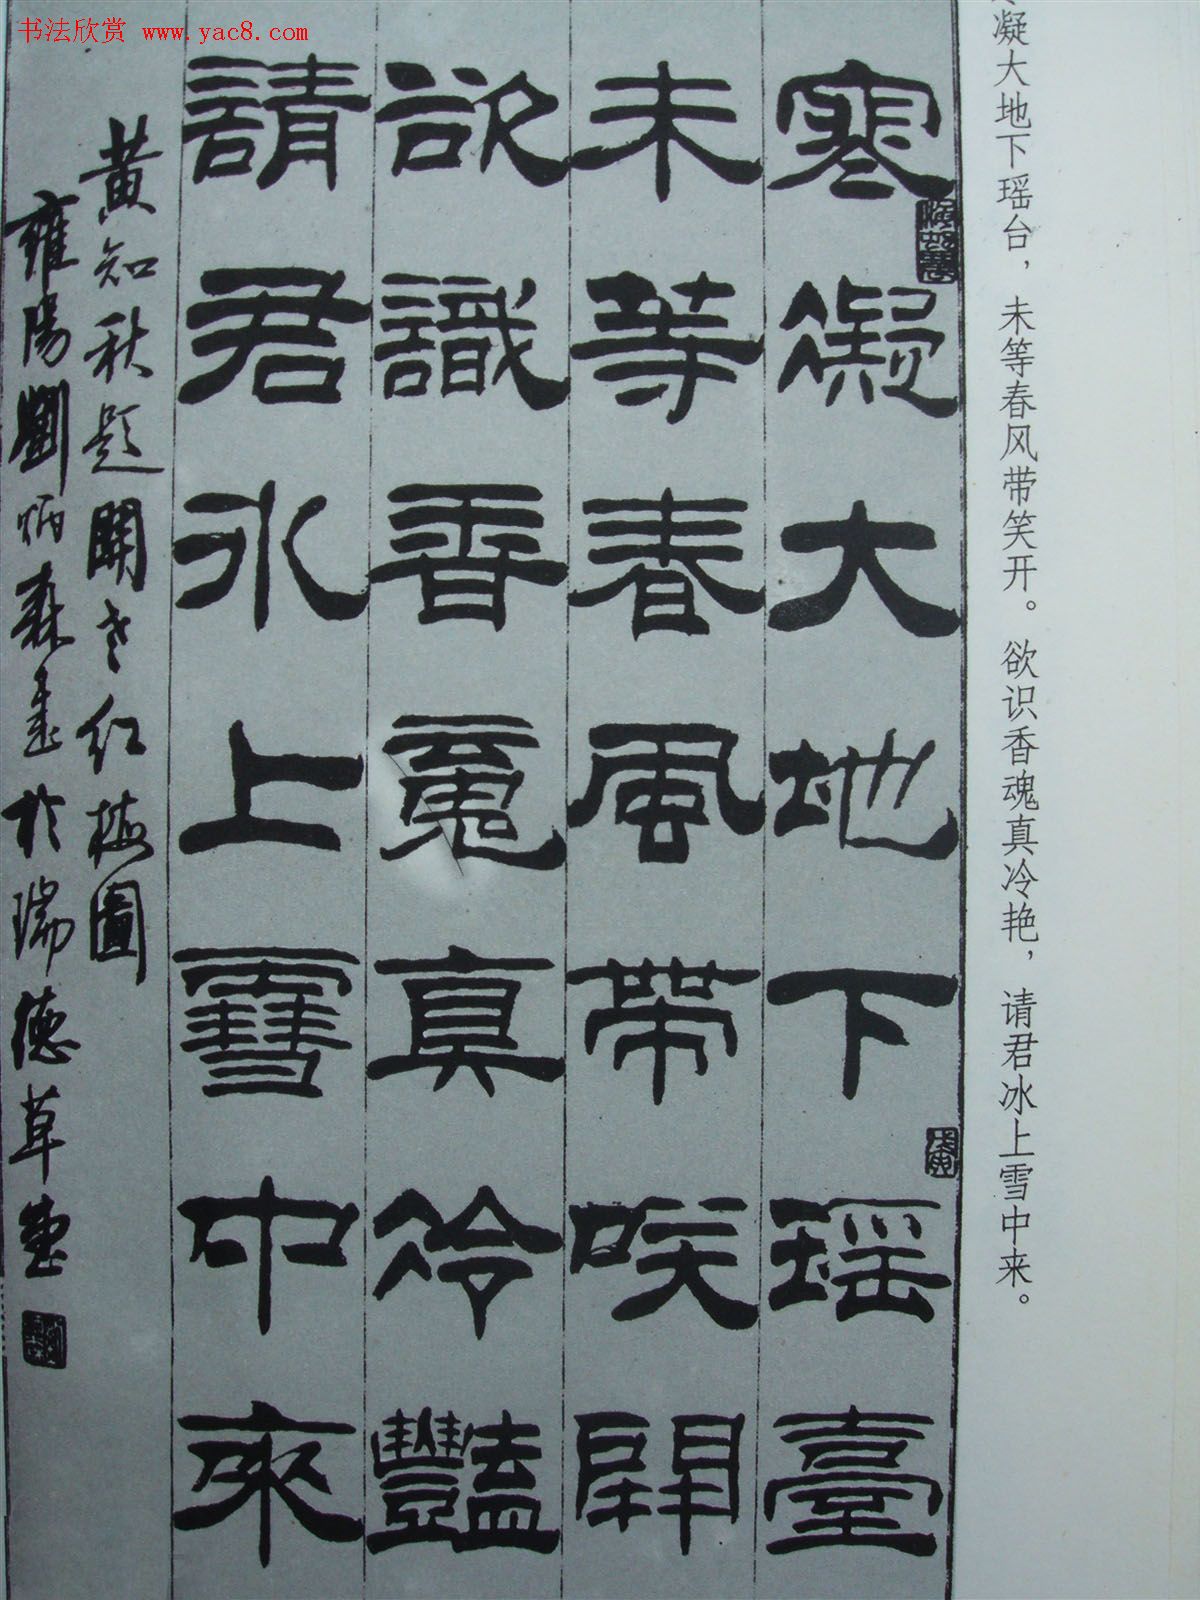 书法欣赏 www.yac8.com
凝大地下瑶台，未等春风带笑开。欲识香魂真冷艳，请君冰上雪中来。
寒凝大地下瑶臺
未等春風帶咲開
欲識香魂真冷豔
請君冰上雪中來
黄知秋題關老红梅圖
雍陽劉炳森書於瑞德草堂
戊寅